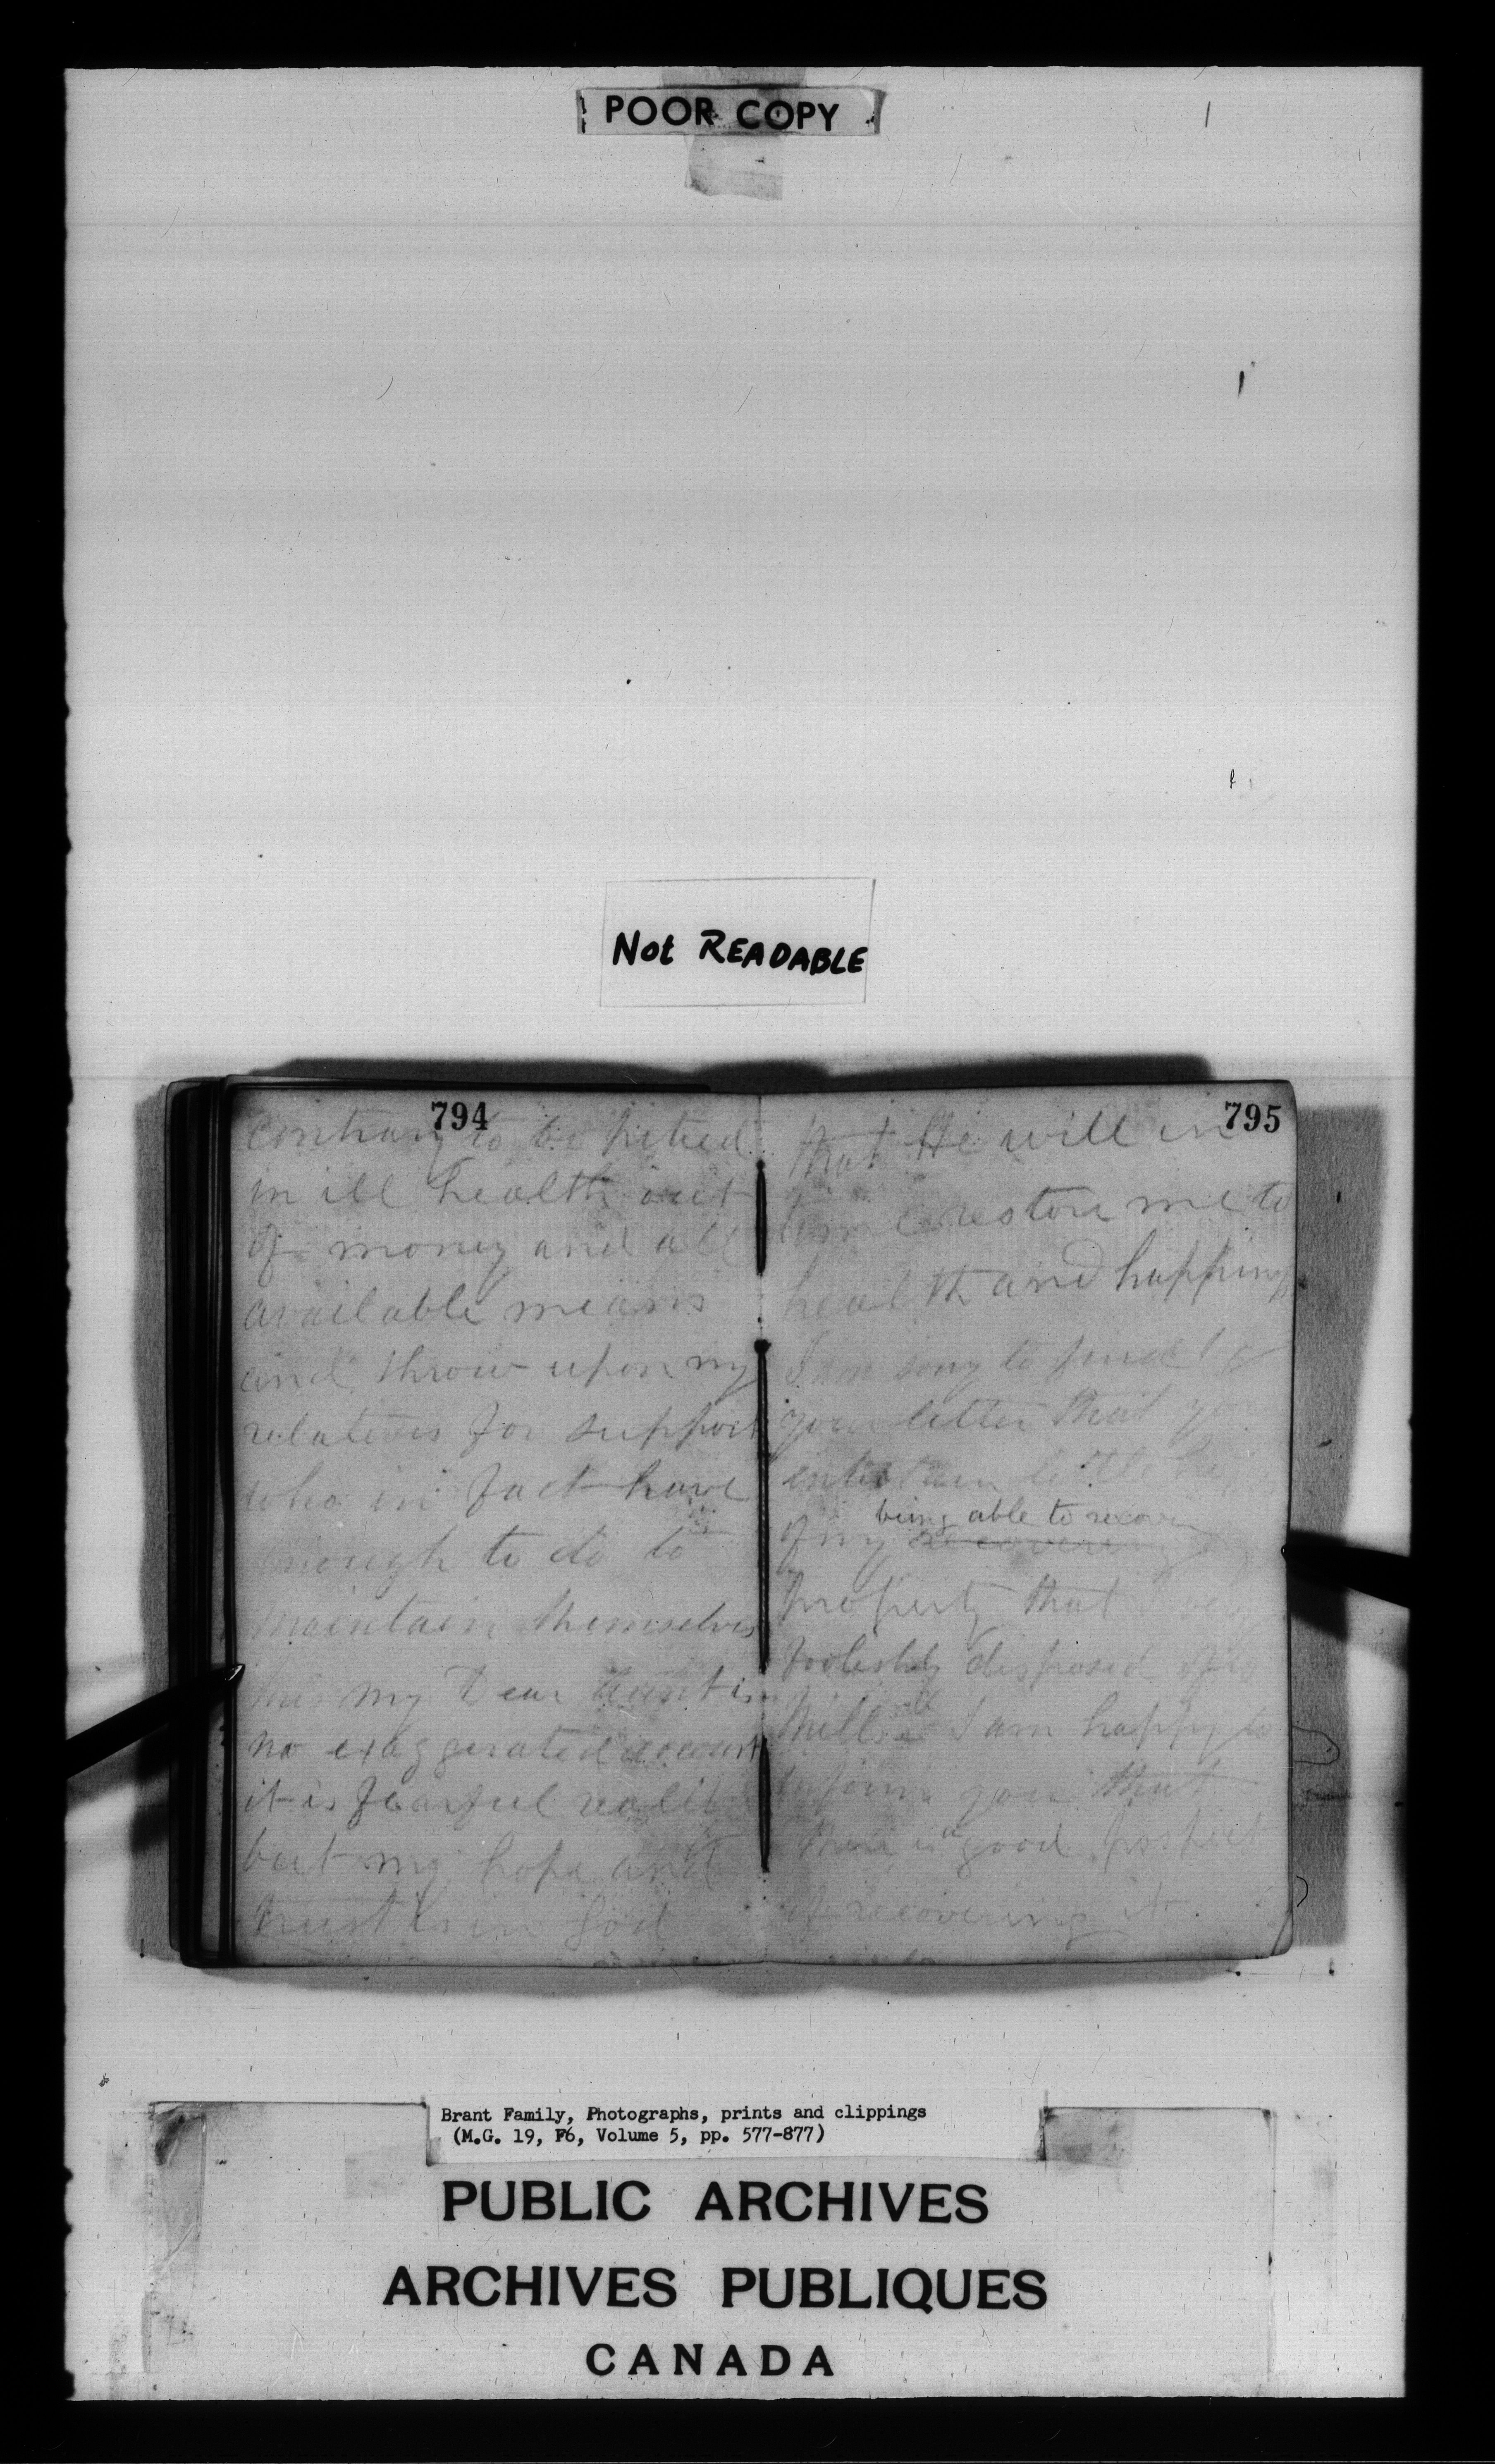 POOR COPY
Not READABLE
794
contrary to be pitied
in ill health out
of money and all
available means
and throw upon my
relatives for support
who in fact have
enough to do to
maintain themselves
this my Dear Aunt is
no exaggerated account
it is fearful realit
but my hope and
trust is in God
795
that He will in
time restore me to
health and happiness
I am sorry to find by
your letter that you
entertain little hopes
being able to recover
of my recovering my
property that I very
foolishly disposed of to
Mills I am happy to
inform you that
there is a good prospect
of recovering it
Brant Family, Photographs, prints and clippings
(M.G. 19, F6, Volume 5, pp. 577-877)
PUBLIC ARCHIVES
ARCHIVES PUBLIQUES
CANADA